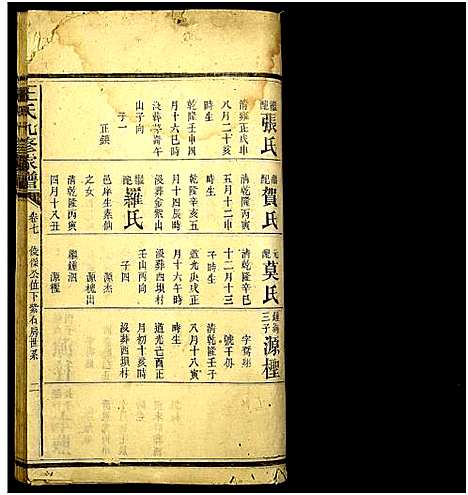 繼配張氏
清雍正戊申
八月二十亥
時生
乾隆壬申十
月十六巳時
沒葬
山子向
子一
正鎮
繼配賀氏
清乾隆丙寅
五月十二申
時生
乾隆辛亥五
月十四辰時
沒葬金紫山
繼配羅氏
邑庠生素仙
之女
清乾隆丙寅
四月十八丑
元配莫氏
清乾隆
十二月十三
子時生
道光庚戌正
月十六午時
沒葬西垻村
壬山丙向
子四
源杰
源槐出
繼鍾泗
源檉
三子源檉
字鴦翔
號干仞
清乾隆壬子
八月十八寅
時生
道光丁亥酉正
月初十亥時
沒葬西垻村
王氏九修家譜
卷七
俊傑公位下紫石房世系
二